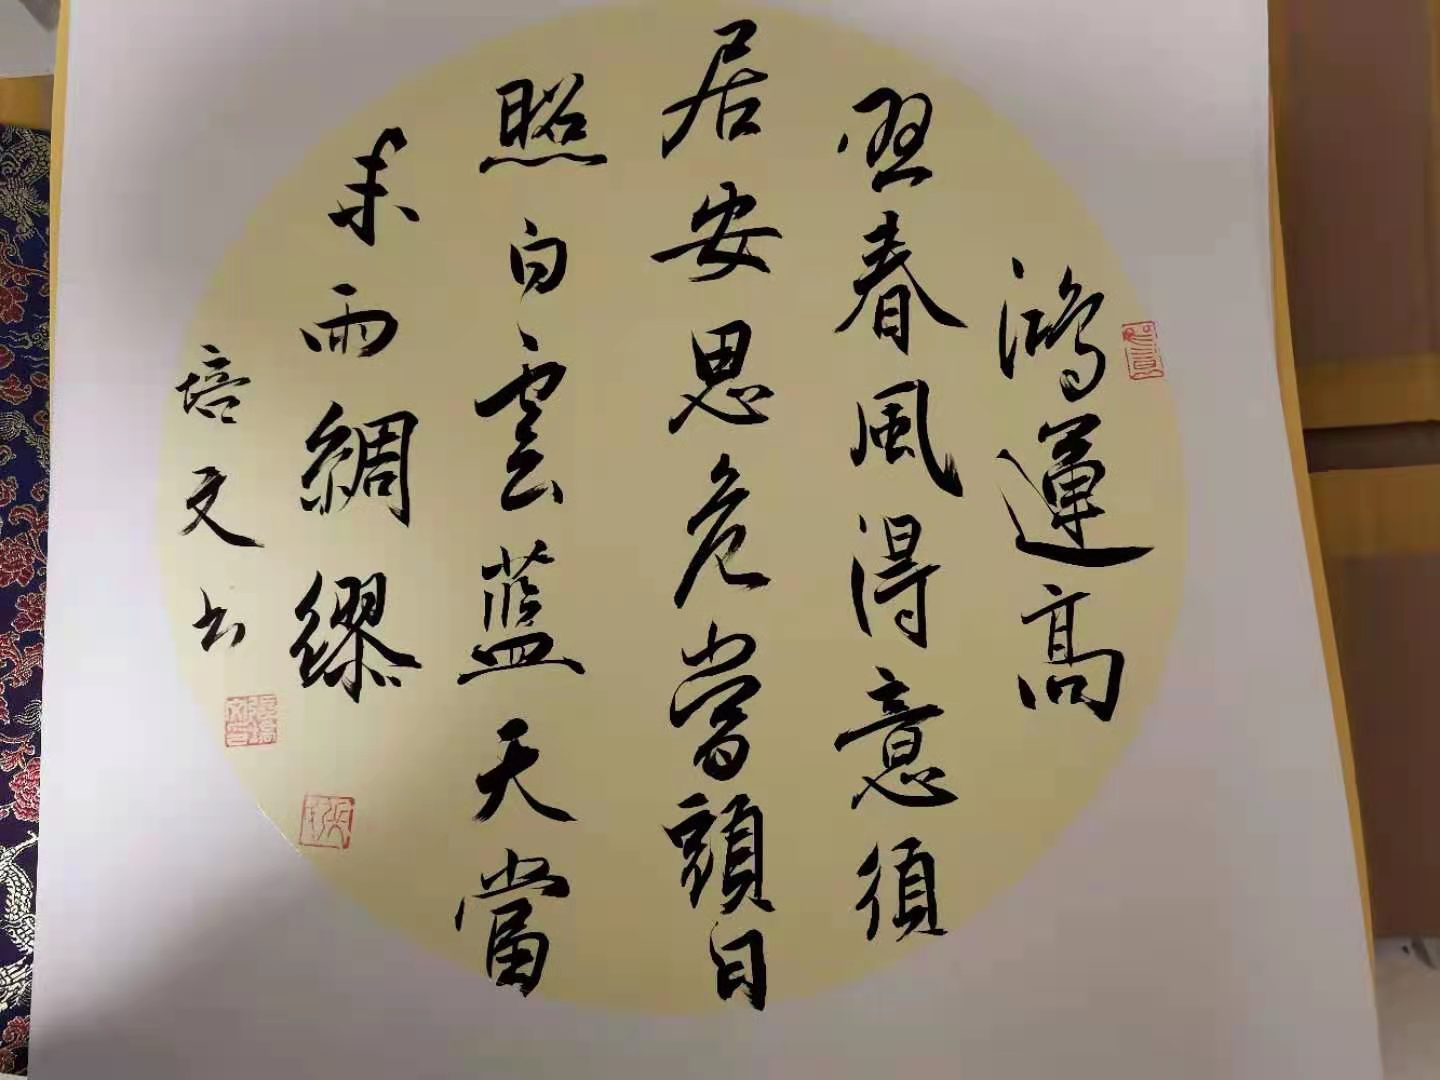 鴻運高
春風得意須
居安思危當頭日
照白雲藍天當
未雨綢繆
培文书